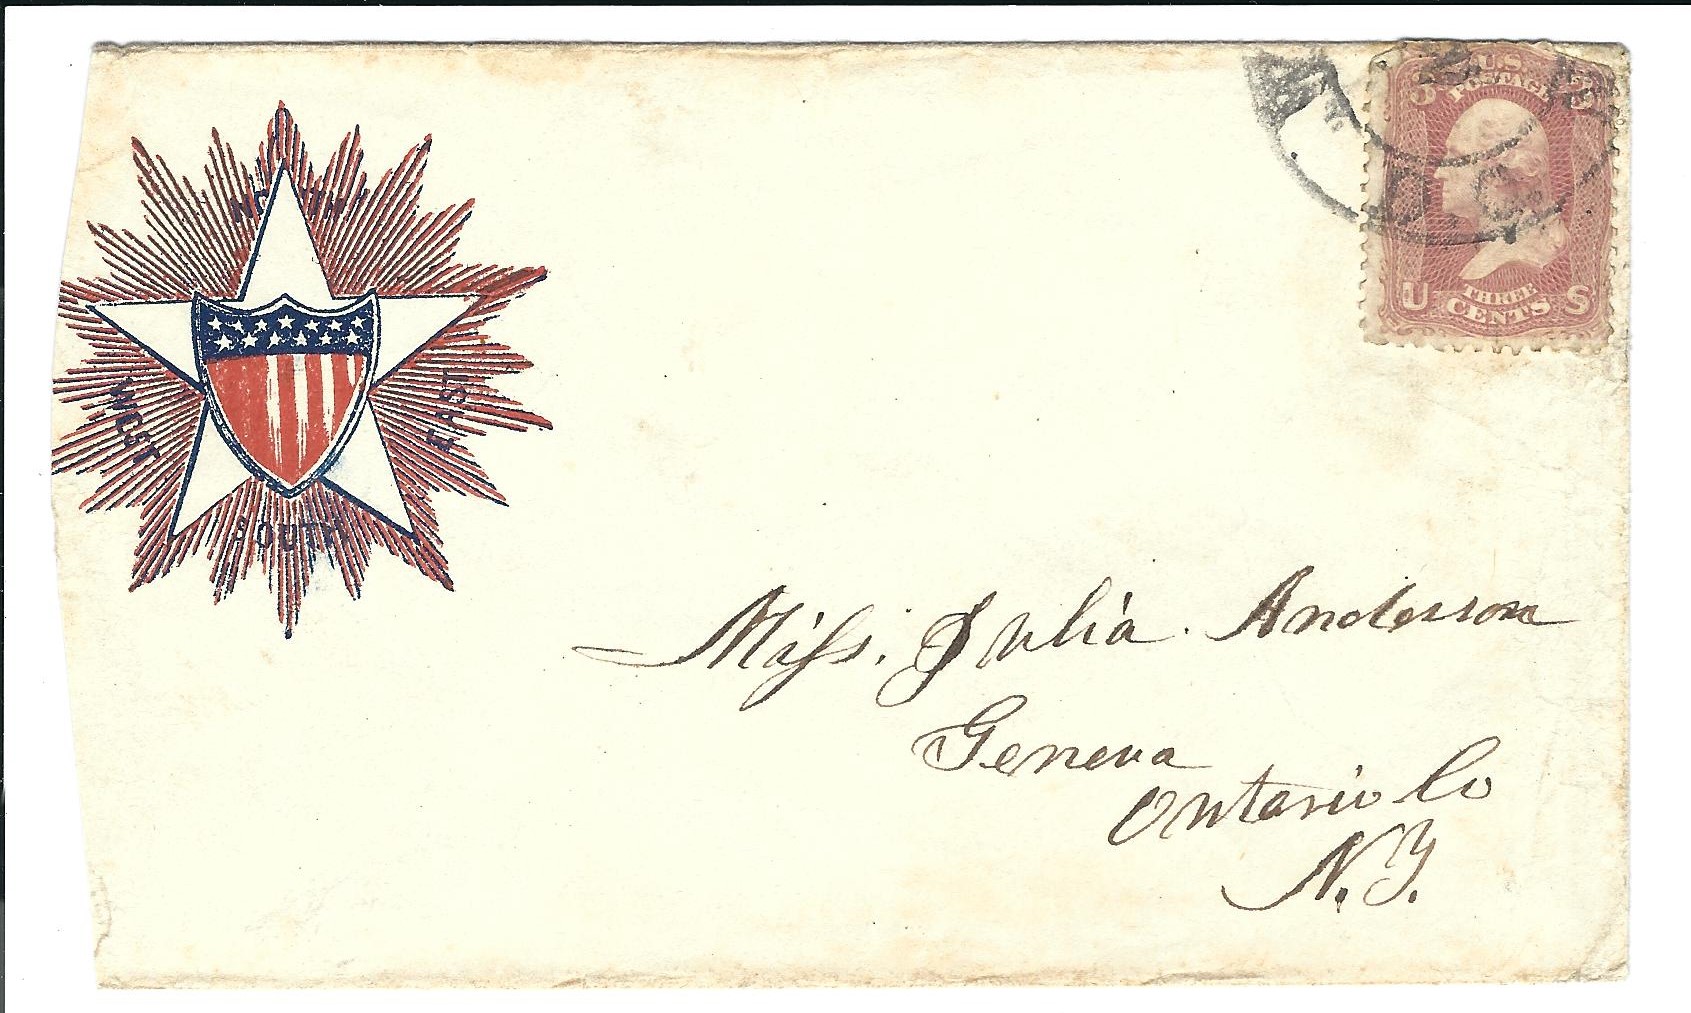 NORTH
WEST
EAST
SOUTH
U.S.
POSTAGE
3 3
D.C.
U THREE S
CENTS
Miss. Julia. Anderson
Geneva
Ontario Co
N.Y.